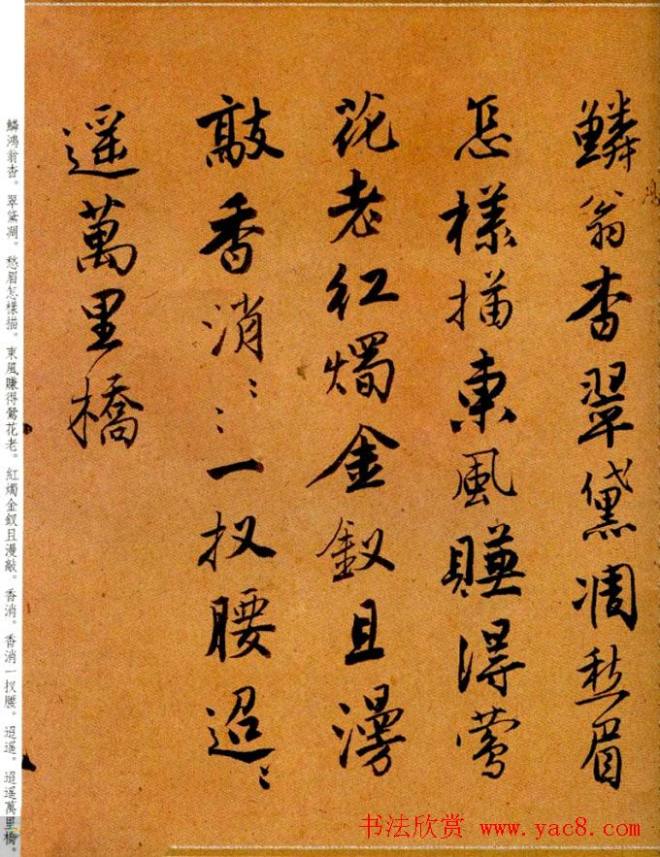 鱗翁杳翠黛凋愁眉
鴻
怎樣描東風賺得鶯
花老紅燭金釵且漫
敲香消〻〻一扠腰迢〻
遥萬里橋
鱗鴻翁杳。翠黛凋。愁眉怎樣描。東風賺得鶯花老。紅燭金釵且漫敲。香消。香消一扠腰。迢遥。迢遥萬里橋。
书法欣赏 www.yac8.com